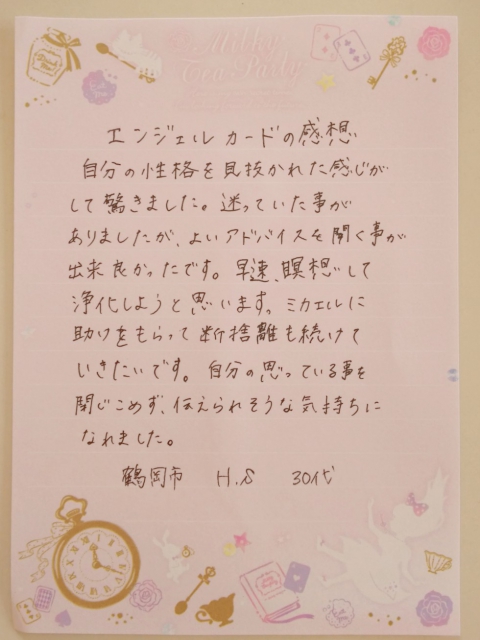 Milky
Tea Party
エンジェルカードの感想
自分の性格を見抜かれた感じが
して驚きました。迷っていた事が
ありましたが、よいアドバイスを聞く事が
出来良かったです。早速、瞑想して
浄化しようと思います。ミカエルに
助けをもらって断捨離も続けて
いきたいです。自分の思っている事を
閉じこめず、伝えられそうな気持ちに
なれました。
鶴岡市 H.S 30代